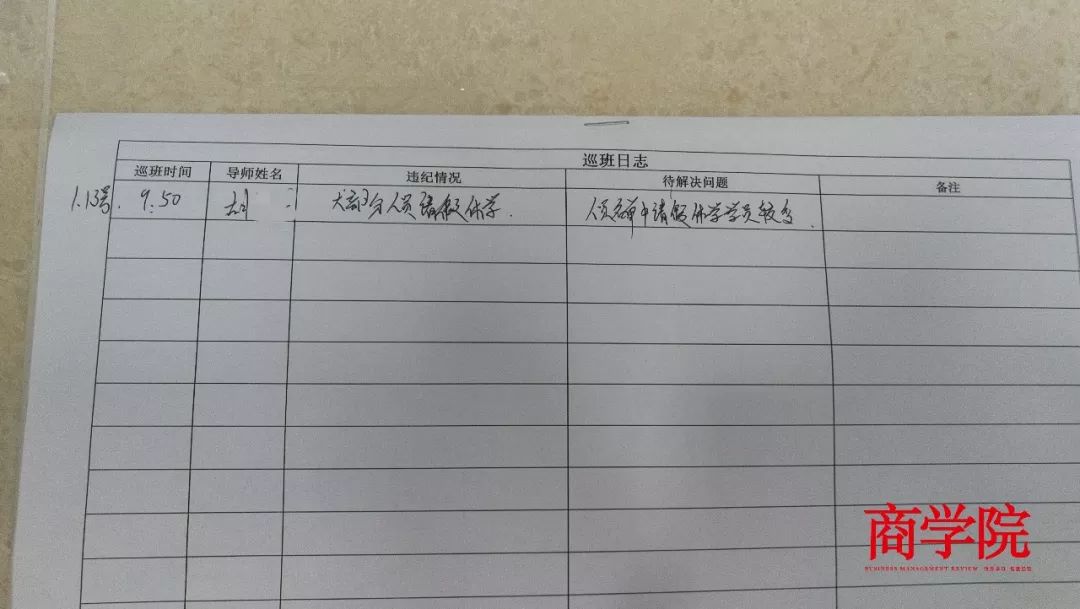 巡班日志
巡班时间 导师姓名 违纪情况 待解决问题 备注
1.13号. 9:50 大部分人员请假休学. 人员名单中请假休学学员较多.
商学院
BUSINESS MANAGEMENT REVIEW